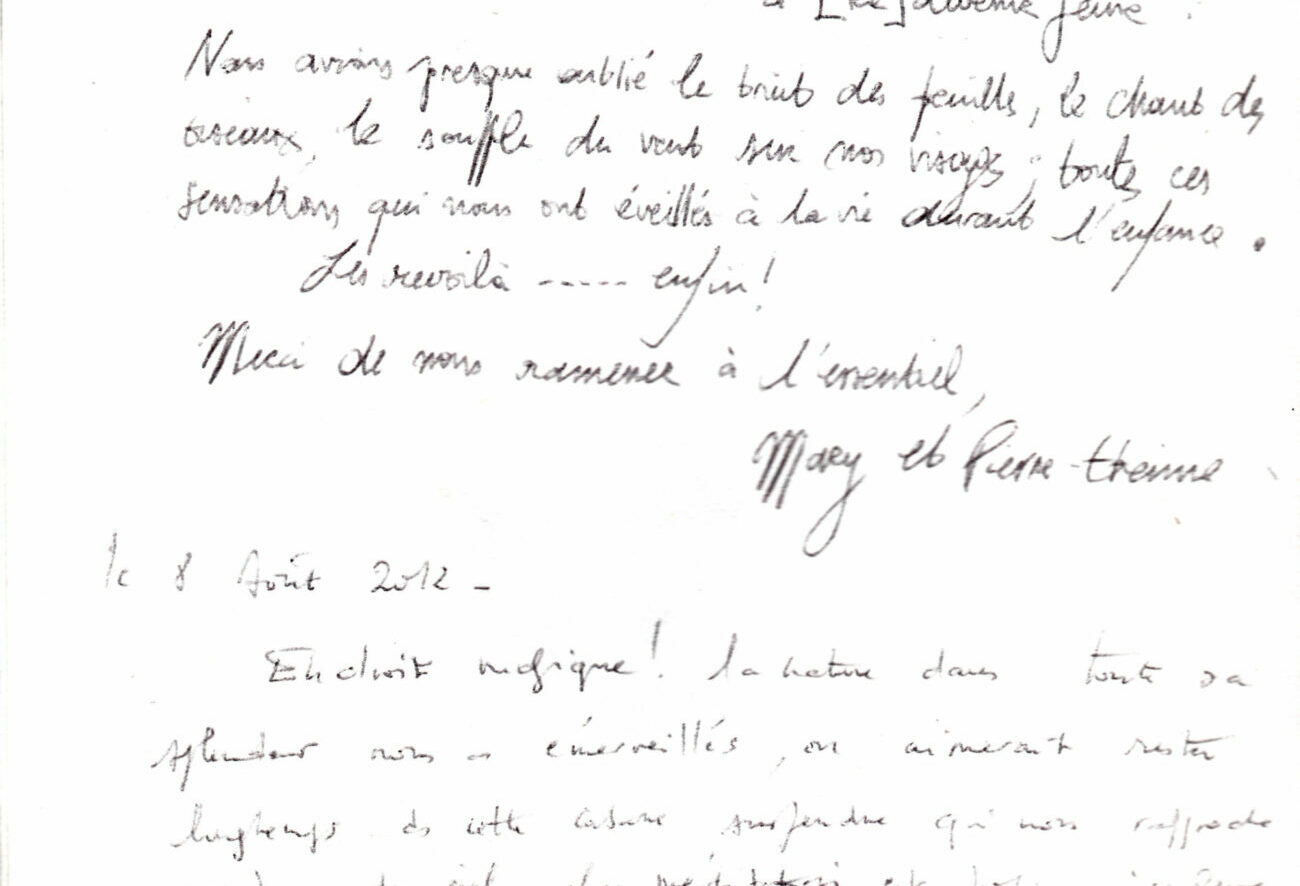 [Re]devenir jeune.
Nous avions presque oublié le bruit des feuilles, le chant des
oiseaux, le souffle du vent sur nos visages ; toutes ces
sensations qui nous ont éveillés à la vie durant l'enfance.
Les revoilà ----- enfin !
Merci de nous ramener à l'essentiel,
Mary et Pierre-Etienne
le 8 Août 2012 -
Endroit magique ! la nature dans toute sa
splendeur nous a émerveillés, on aimerait rester
longtemps ds cette cabane suspendue qui nous rapproche